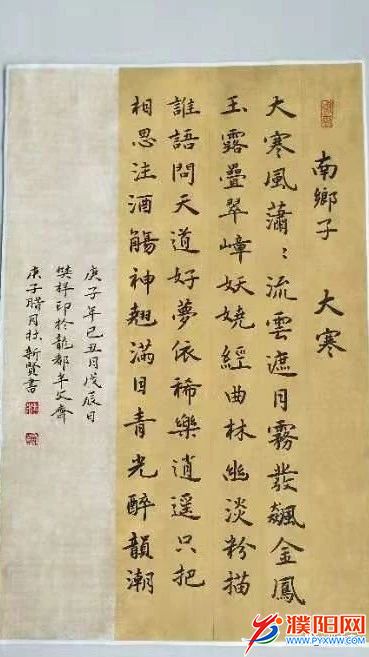 南鄉子 大寒
大寒風蕭〻流雲遮月霧發飄金鳳
玉露疊翠嶂妖嬈經曲林幽淡粉描
誰語問天道好夢依稀樂逍遥只把
相思注酒觴神翹滿目青光醉韻潮
庚子年己丑月戊辰日
樊祥印於龍都年文齋
庚子腊月杜新賢書
濮阳网
WWW.PYXWW.COM